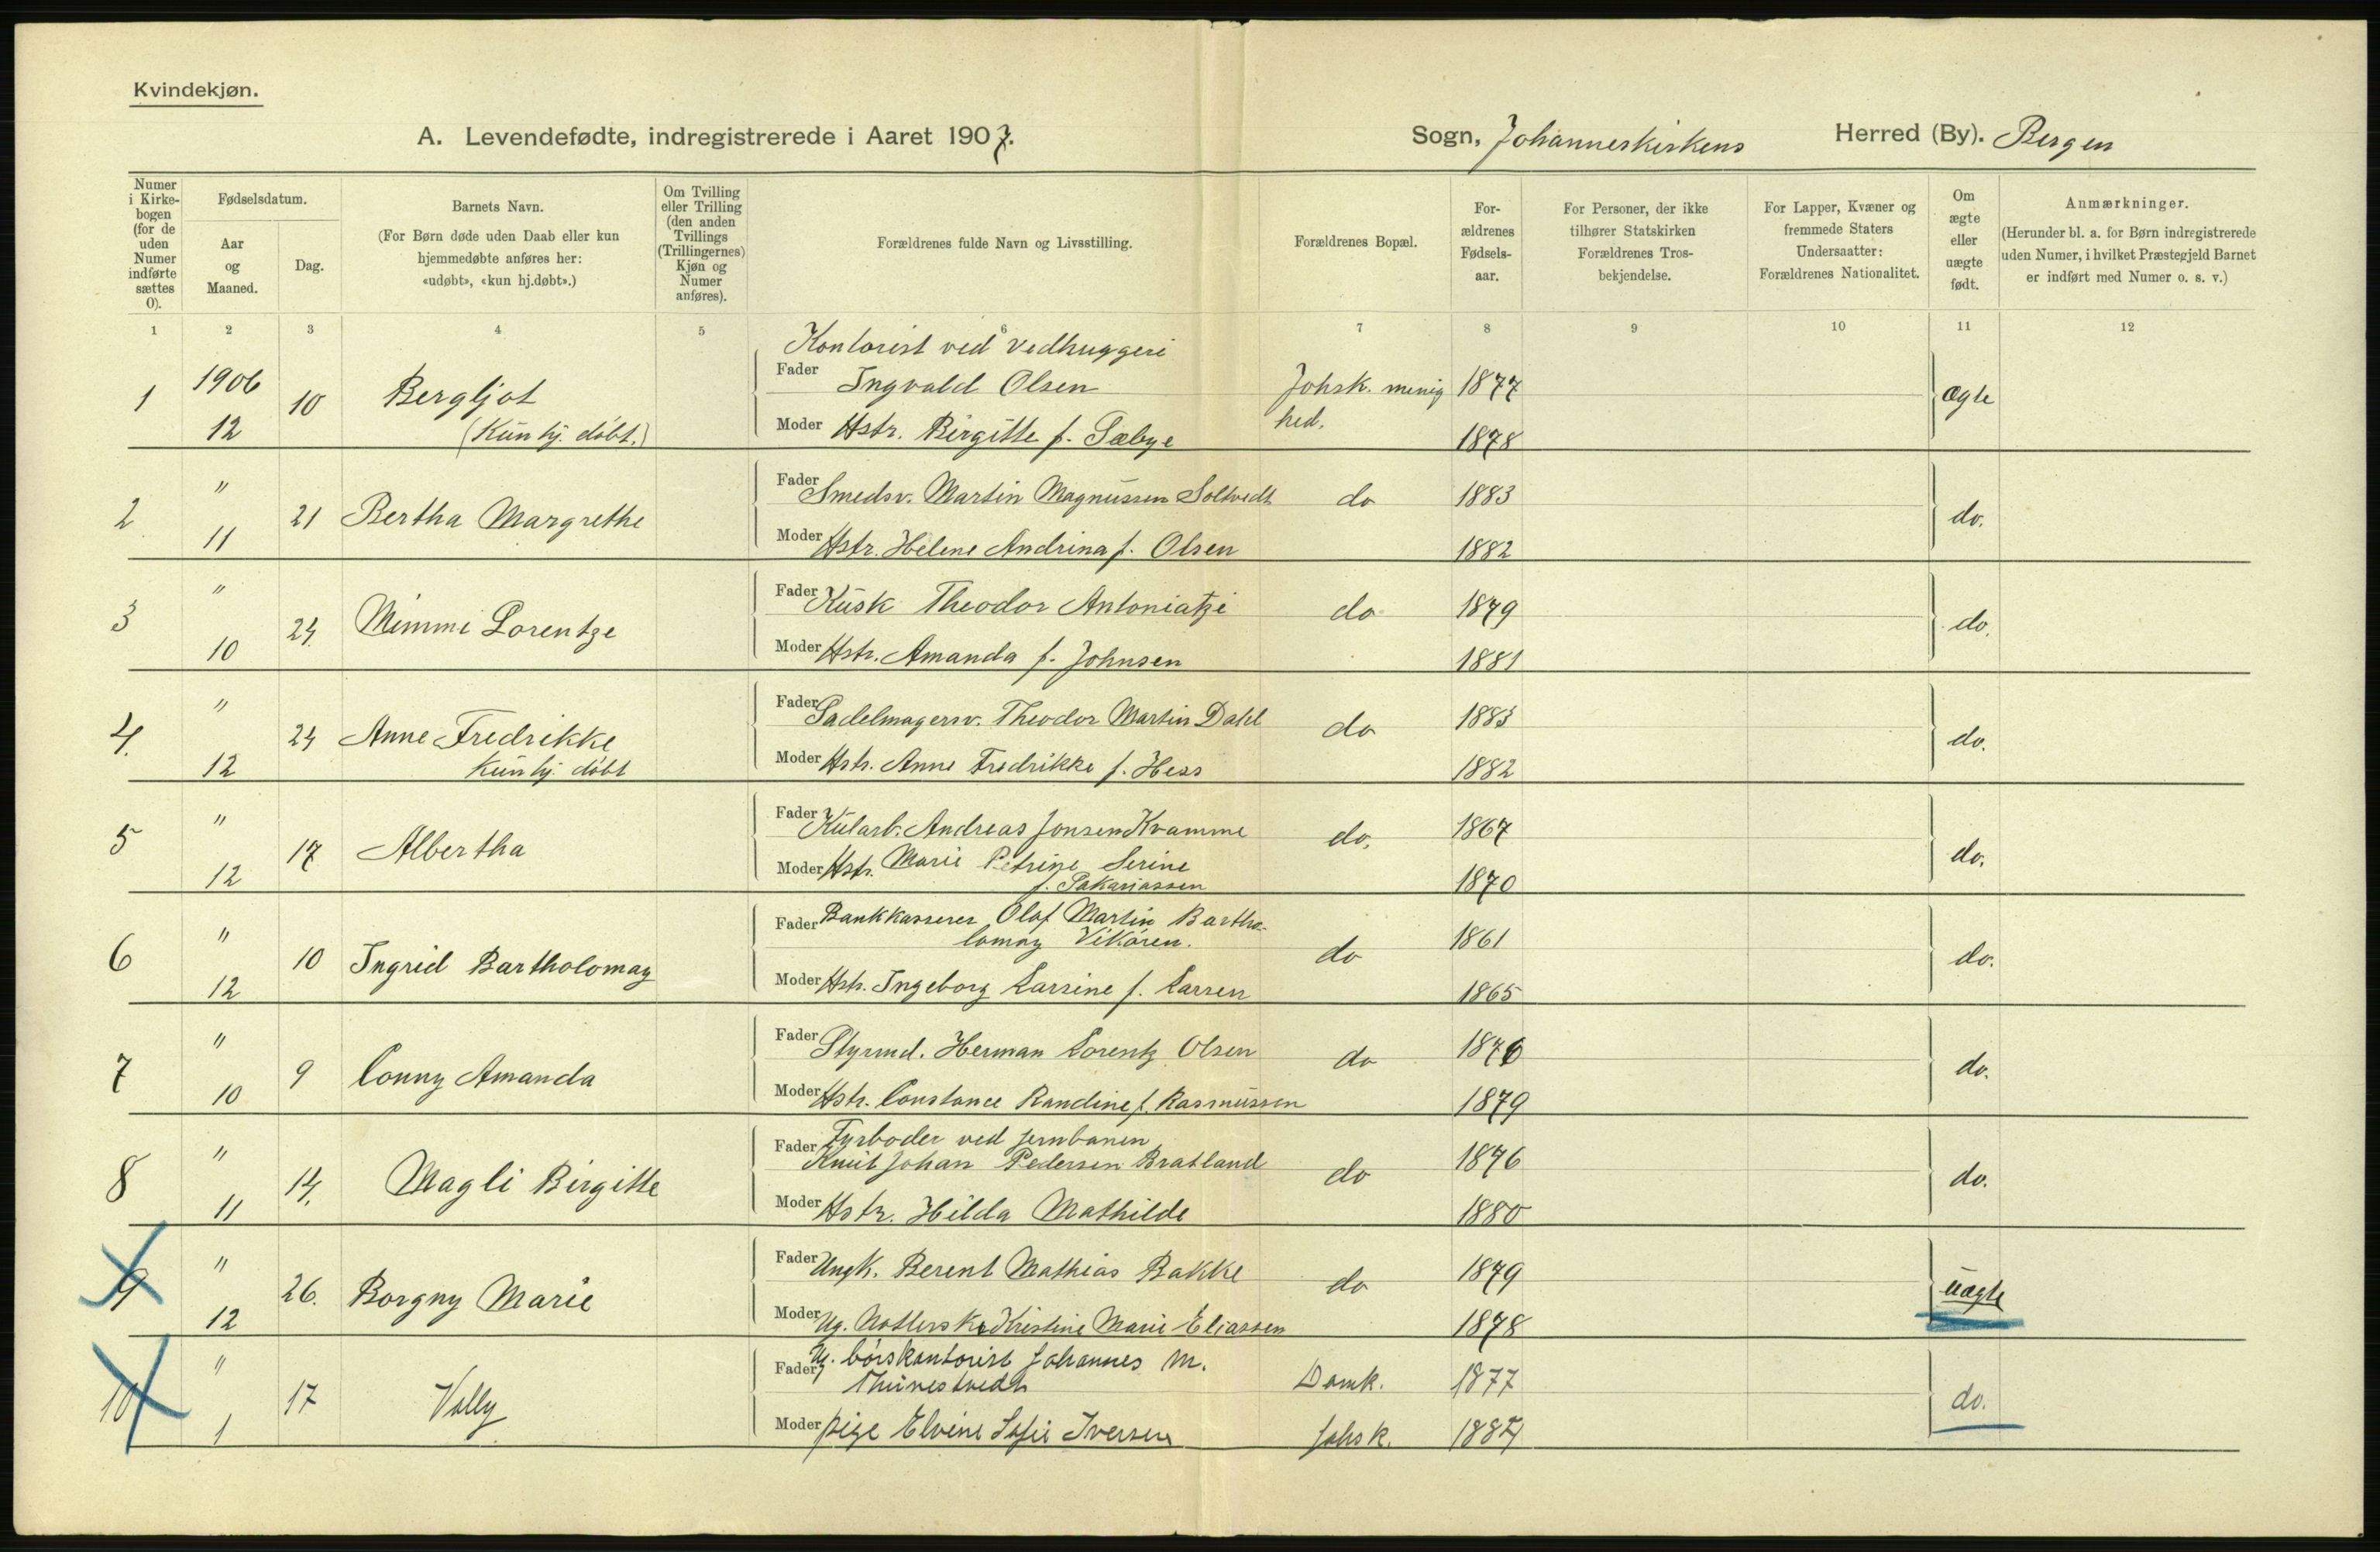 Kvindekjøn.
A. Levendefødte, indregistrerede i Aaret 1907. Sogn, Johanneskirkens Herred (By). Bergen
Numer i Kirkebogen (for de uden Numer indførte sættes 0).
Fødselsdatum.
Aar og Maaned.
Dag.
Barnets Navn.
(For Børn døde uden Daab eller kun hjemmedøbte anføres her: «udøbt», «kun hj.døbt».)
Om Tvilling eller Trilling (den anden Tvillings (Trillingernes) Kjøn og Numer anføres).
Forældrenes fulde Navn og Livsstilling.
Forældrenes Bopæl.
Forældrenes Fødselsaar.
For Personer, der ikke tilhører Statskirken Forældrenes Trosbekjendelse.
For Lapper, Kvæner og fremmede Staters Undersaatter: Forældrenes Nationalitet.
Om ægte eller uægte født.
Anmærkninger.
(Herunder bl. a. for Børn indregistrerede uden Numer, i hvilket Præstegjeld Barnet er indført med Numer o. s. v.)
1 2 3 4 5 6 7 8 9 10 11 12
Kontorist ved Vedhuggeri
1 1906 12 10 Bergljot (Kun hj. döbt.) Fader Ingvald Olsen Johsk. menighed. 1877 ægte
Moder Hstr. Birgitte f. Sæbye 1878
2 " 11 21 Bertha Margrethe Fader Smedsv. Martin Magnussen Soltvedt do 1883 do.
Moder Hstr. Helene Andrina f. Olsen 1882
3 " 10 24. Mimmi Lorentze Fader Kusk Theodor Antoniatzi do 1879 do.
Moder Hstr. Amanda f. Johnsen 1881
4. " 12 24 Anne Fredrikke Kun hj. döbt Fader Sadelmagersv. Theodor Martin Dahl do 1883 do.
Moder Hstr. Anne Fredrikke f. Hess 1882
5 " 12 17 Albertha Fader Kularb. Andreas Jonsen Kvamme do. 1867 do.
Moder Hstr. Marie Petrine Serine
f. Sakariassen 1870
6 " 12 10 Ingrid Bartholomay Fader Bankkasserer Olaf Martin Bartho-
lomay Vikören. do 1861 do.
Moder Hstr. Ingeborg Larsine f. Larsen 1865
7 " 10 9 Conny Amanda Fader Styrmd. Herman Lorentz Olsen do 1876 do.
Moder Hstr. Constance Randine f. Rasmussen 1879
8 " 11 14. Magli Birgitte Fader Fyrboder ved Jernbanen
Knut Johan Pedersen Bratland do 1876 do.
Moder Hstr. Hilda Mathilde 1880
9 " 12 26. Borgny Marie Fader Ungk. Berent Mathias Bakke do 1879 uægte
Moder Ug. Kristine Marie Eliassen 1878
10 " 1 17 Vally Fader U. börskontorist Johannes M.
Thunestvedt Domk. 1877 do.
Moder pige Elvine Sofie Iversen Johsk. 1884